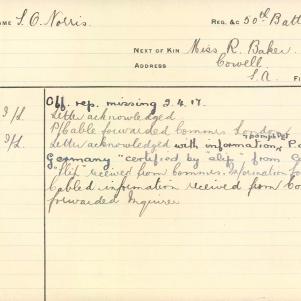 NAME S. O. Norris. REG. &C 50th Batt
NEXT OF KIN Miss R. Baker.
ADDRESS Cowell.
S.A.
Off. rep. missing 2.4.17.
Letter acknowledged
P/Cable forwarded Commrs London
Letter acknowledged with information & pamphlet P.
Germany "certified by "slip" from
"Slip" received from Commrs. Information
Cabled information received from Co
forwarded Inquirer